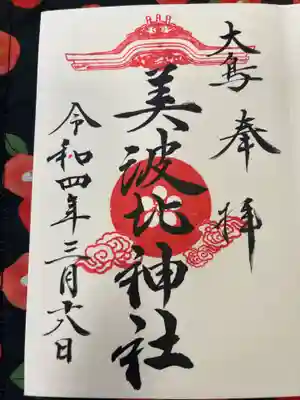 大鳥 奉拝
美波比神社
令和四年三月十六日